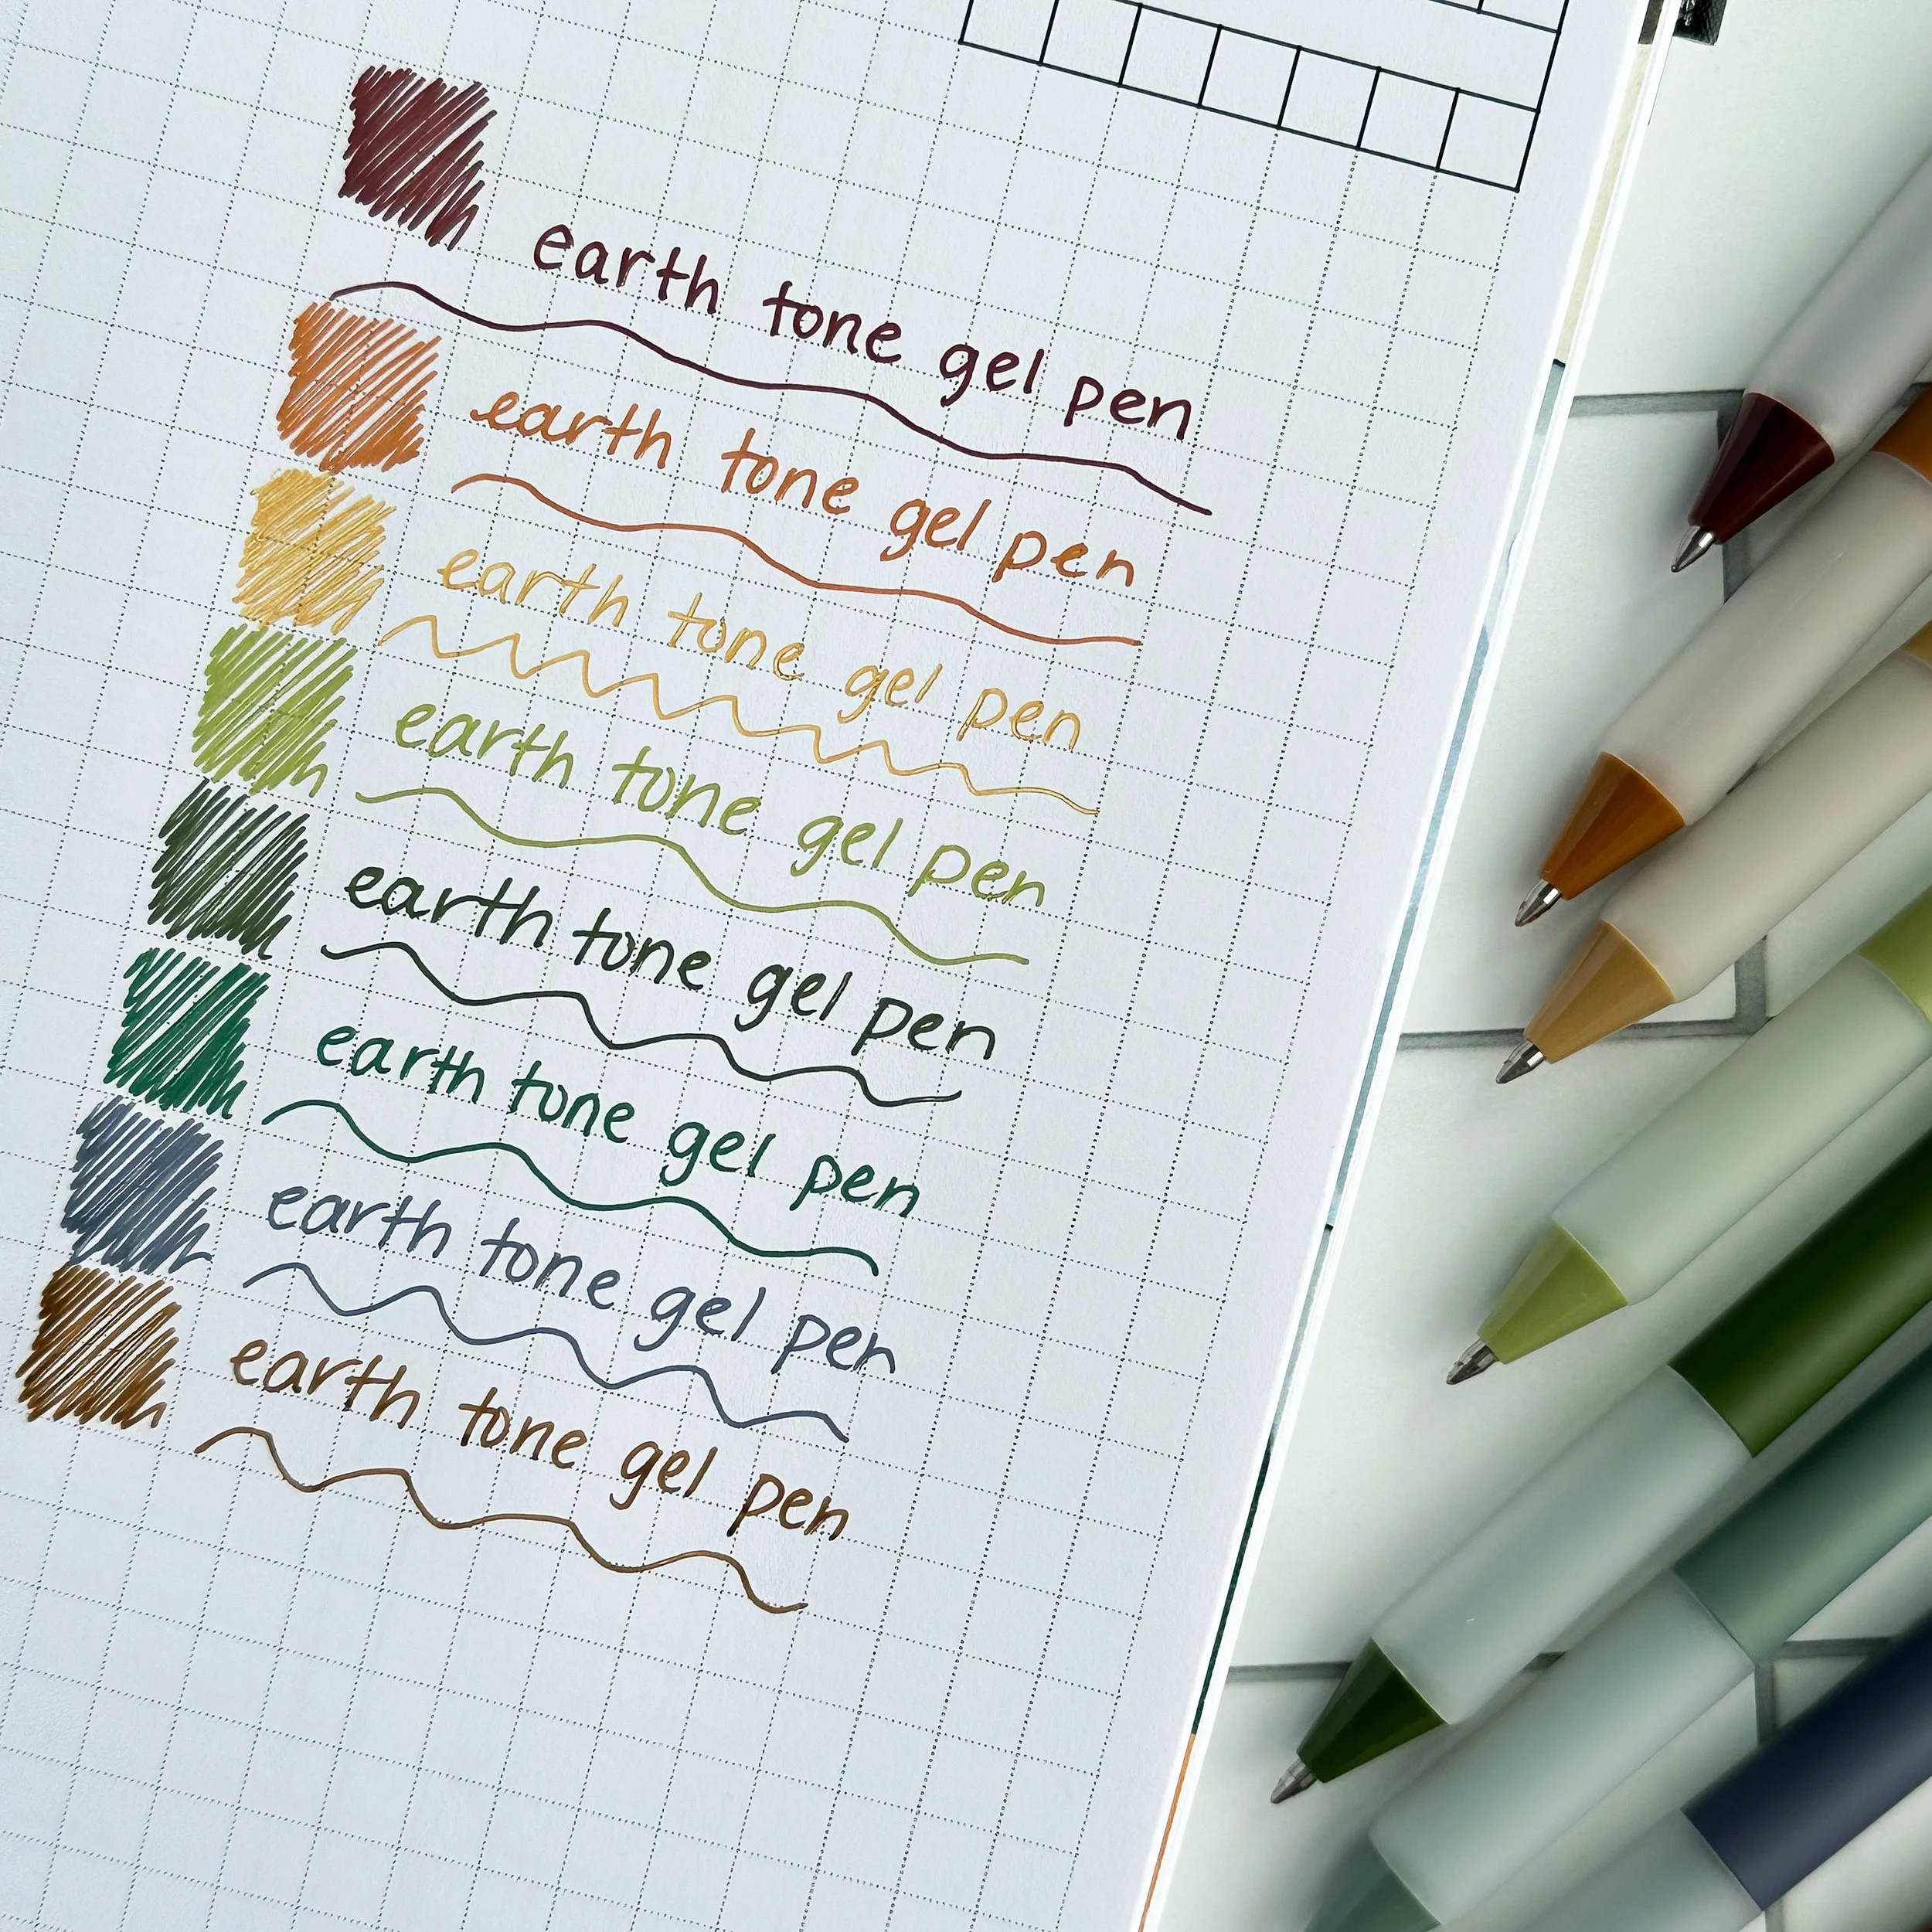 earth tone gel pen
earth tone gel pen
earth tone gel pen
earth tone gel pen
earth tone gel pen
earth tone gel pen
earth tone gel pen
earth tone gel pen